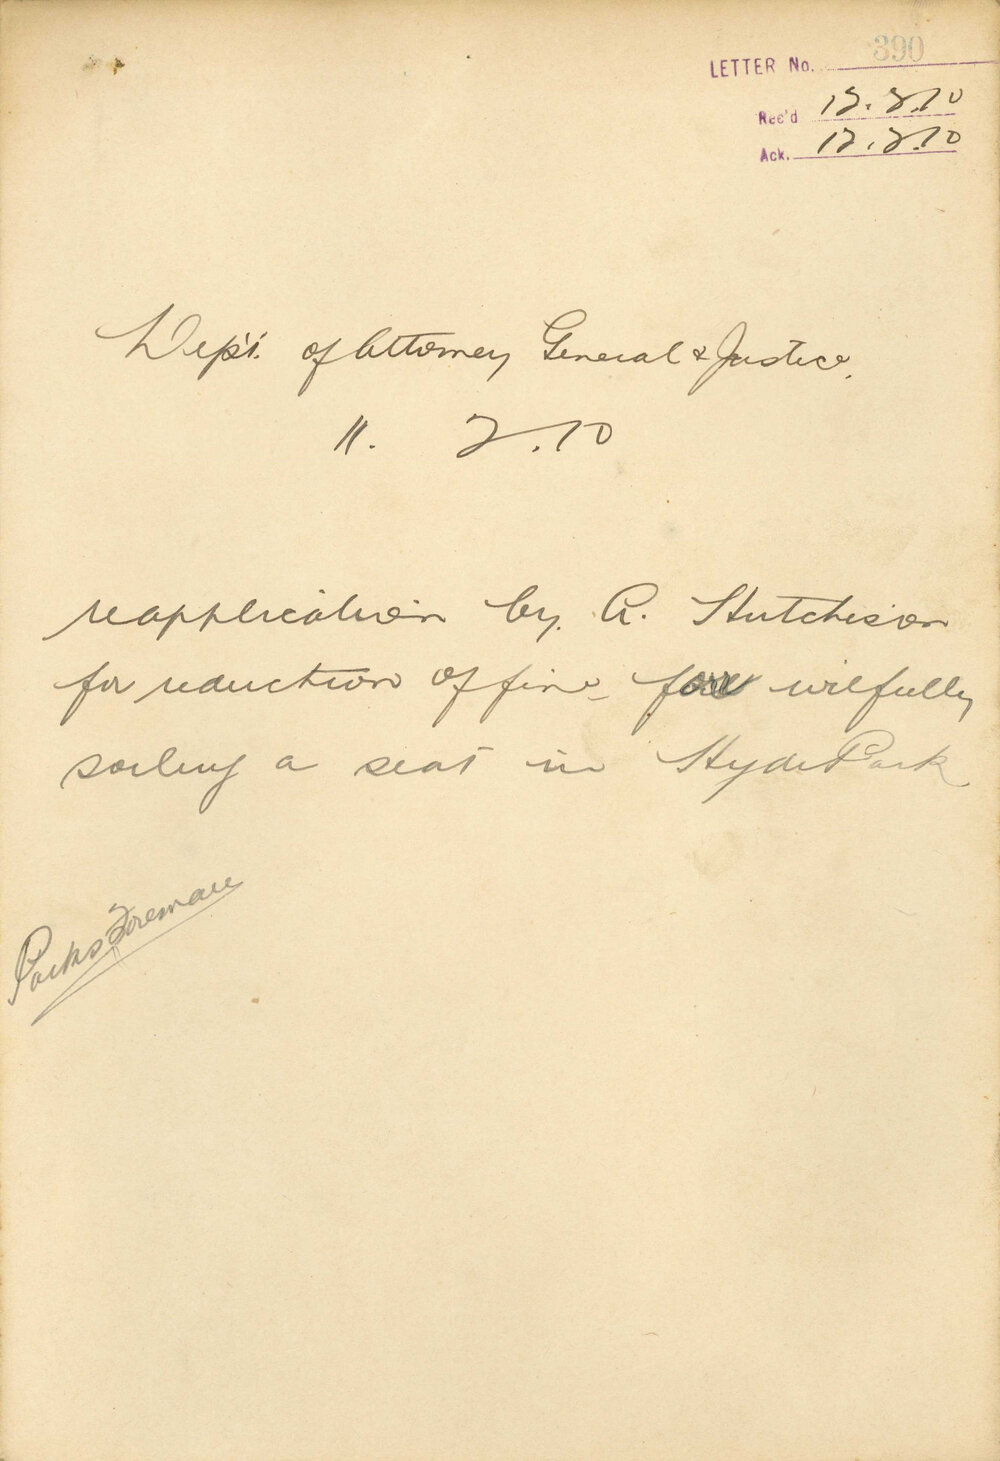 LETTER No. 390
Rec'd 12.2.10
Ack. 12.2.10
Dep't. of Attorney General & Justice.
11. 2.10
re application by A. Hutchison
for reduction of fine for wilfully
soiling a seat in Hyde Park
Parks Foreman